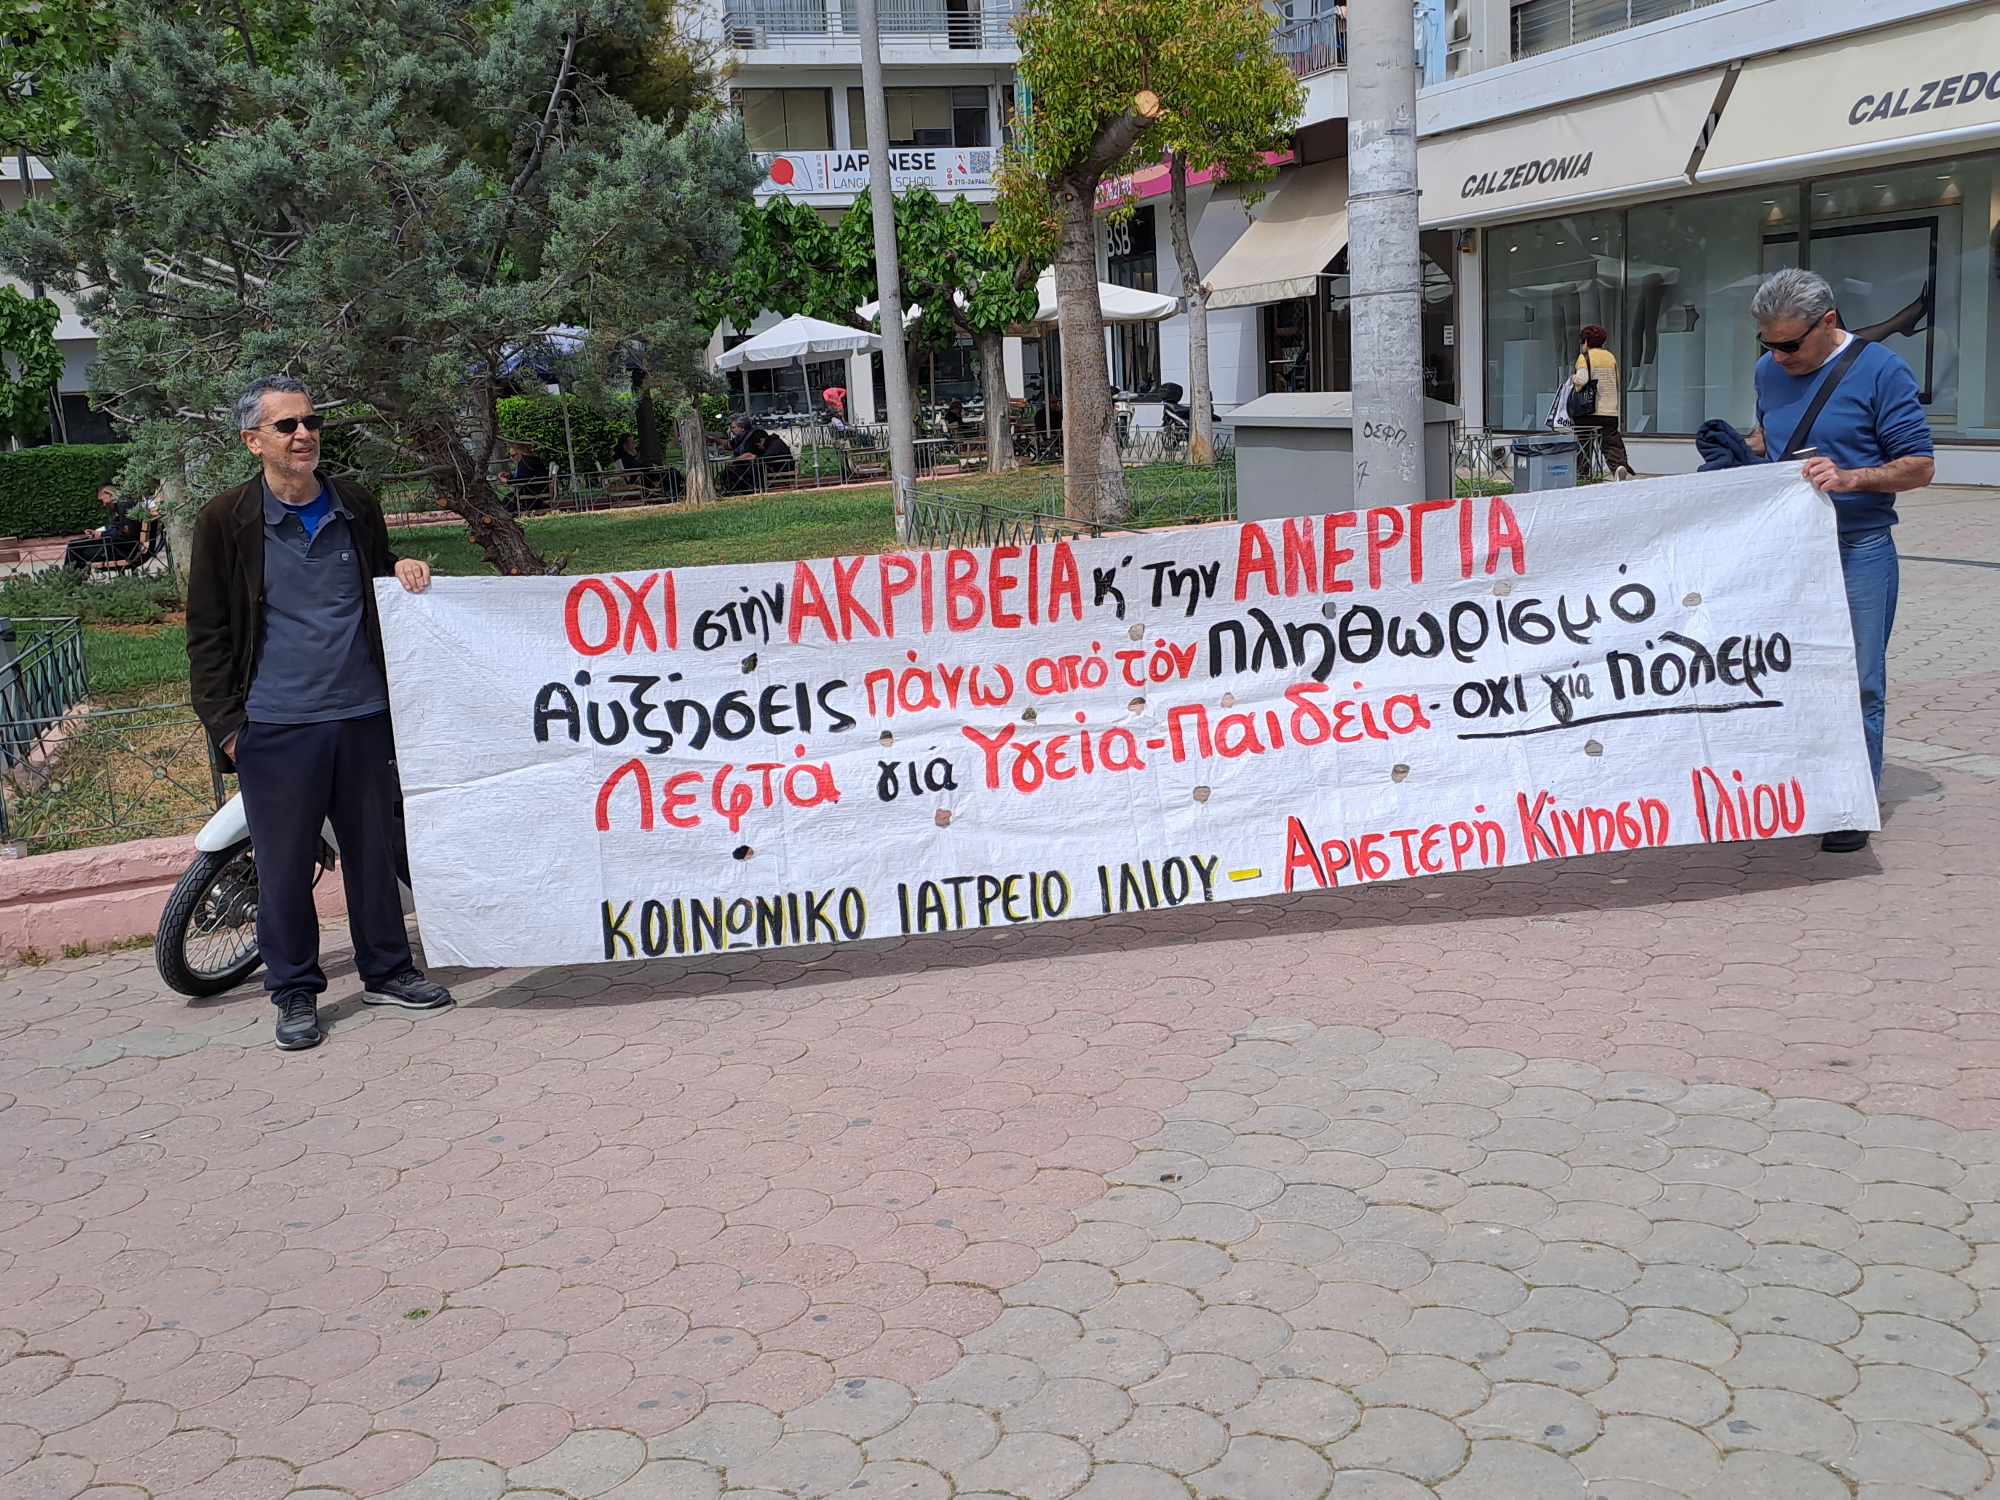 JAPANESE
LANGUAGE SCHOOL
CALZEDONIA
CALZEDO
BSB
ΟΧΙ στήν ΑΚΡΙΒΕΙΑ κ' την ΑΝΕΡΓΙΑ
Αὐξήσεις πάνω από τόν πληθωρισμό
Λεφτά γιά Υγεία-Παιδεία-οχι γιά πόλεμο
ΚΟΙΝΩΝΙΚΟ ΙΑΤΡΕΙΟ ΙΛΙΟΥ – Αριστερή Κίνηση Ιλίου